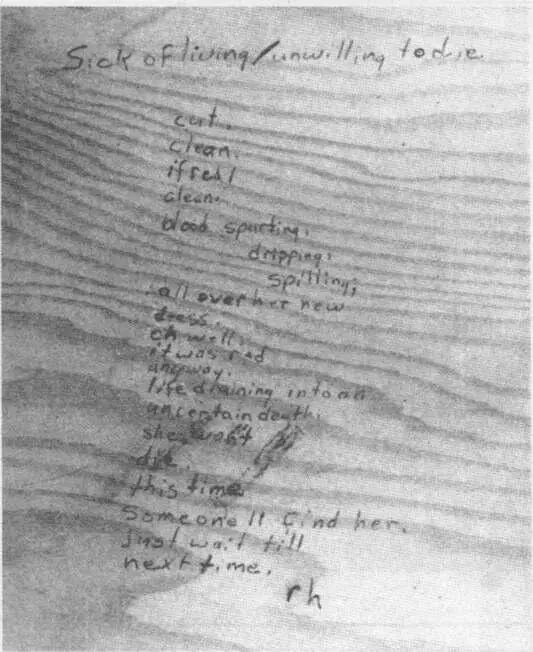 Sick of living/unwilling to die
cut.
clean.
if red/
clean.
blood spurting,
dripping,
spilling;
all over her new
dress.
oh well.
it was red
anyway.
life draining into an
uncertain death.
she wont
die.
this time
Someonell find her.
just wait till
next time.
rh